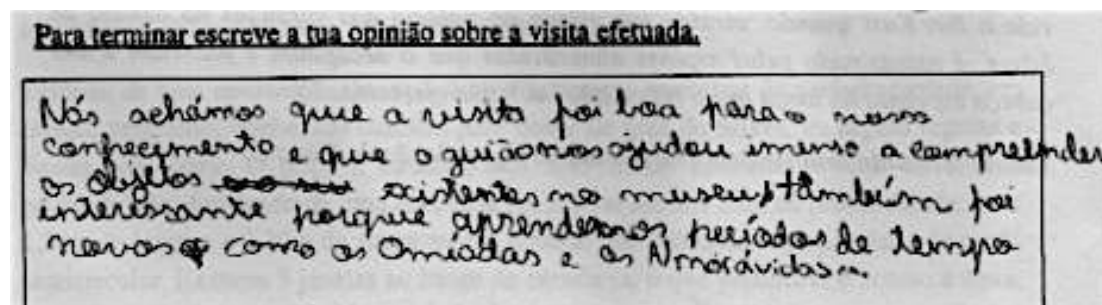 Para terminar escreve a tua opinião sobre a visita efetuada.
Nós achámos que a visita foi boa para o nosso
conhecimento e que o guião nos ajudou imenso a compreender
os objetos existentes no museu, também foi
interessante porque aprendemos períodos de tempo
novos como os Omíadas e os Almorávidas...